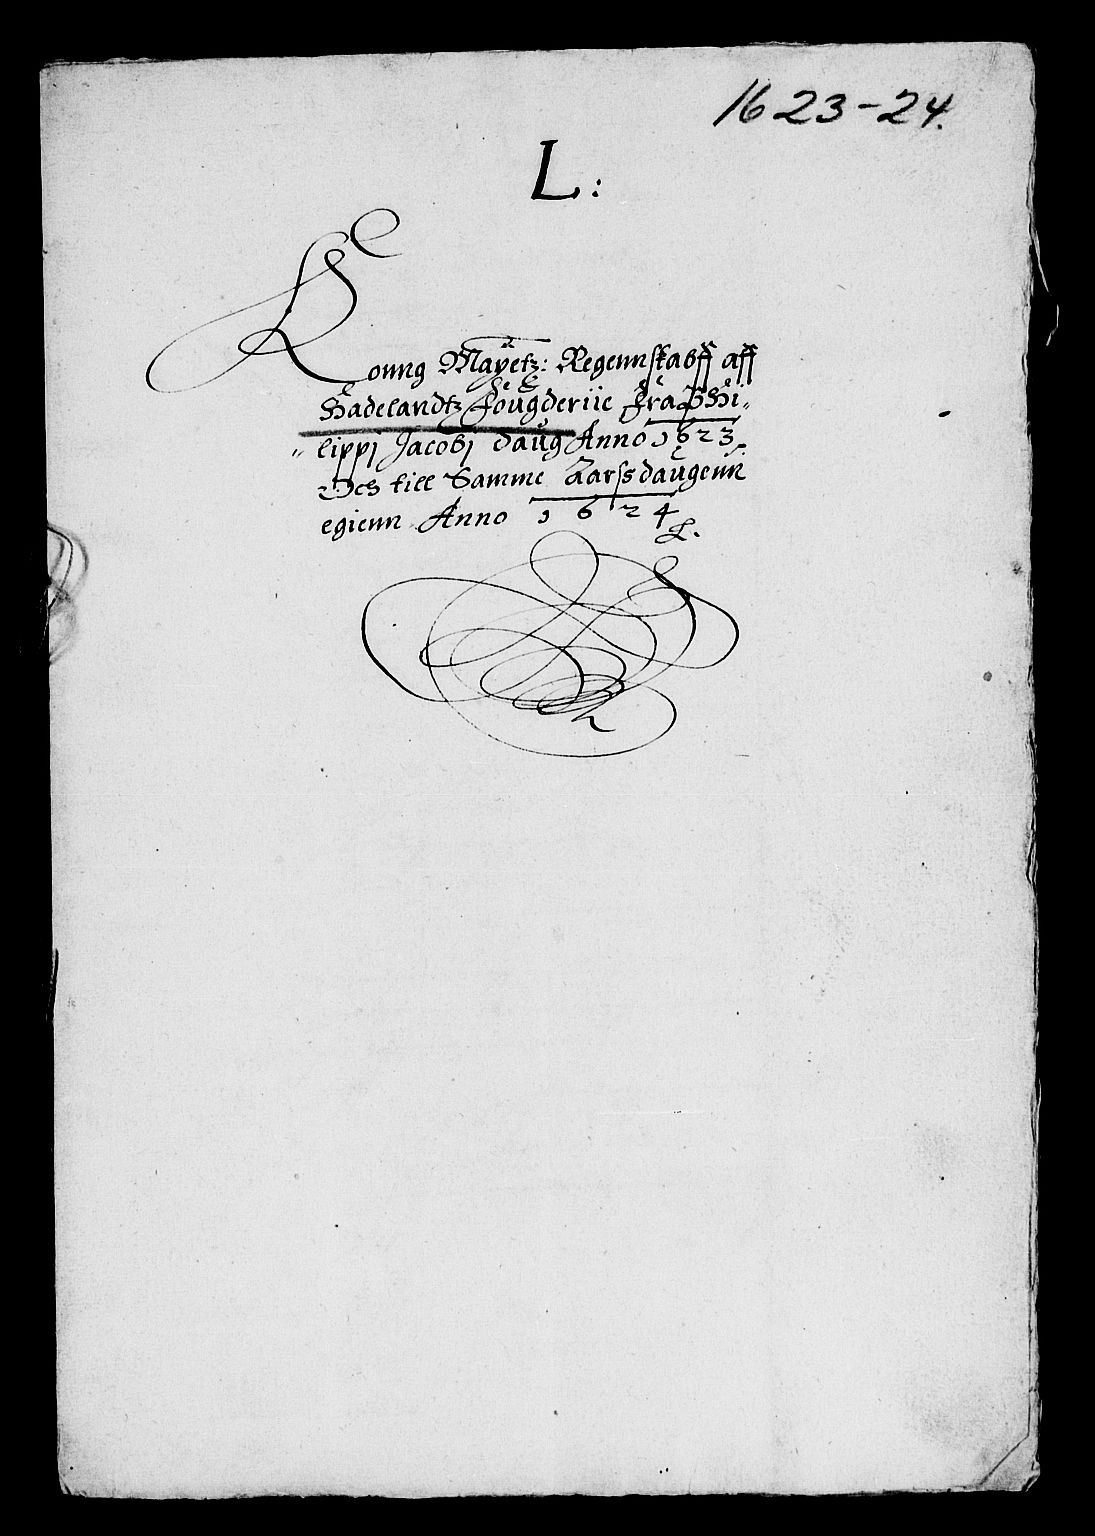 1623-24.
L:
Konng Mayetz: Regennskabff aff
Hadelandtz Fougderiie Fra Phi„
„lippj Jacobj daug Anno 1623.
Och till Samme Aarssdaugenn
egienn Anno 1624